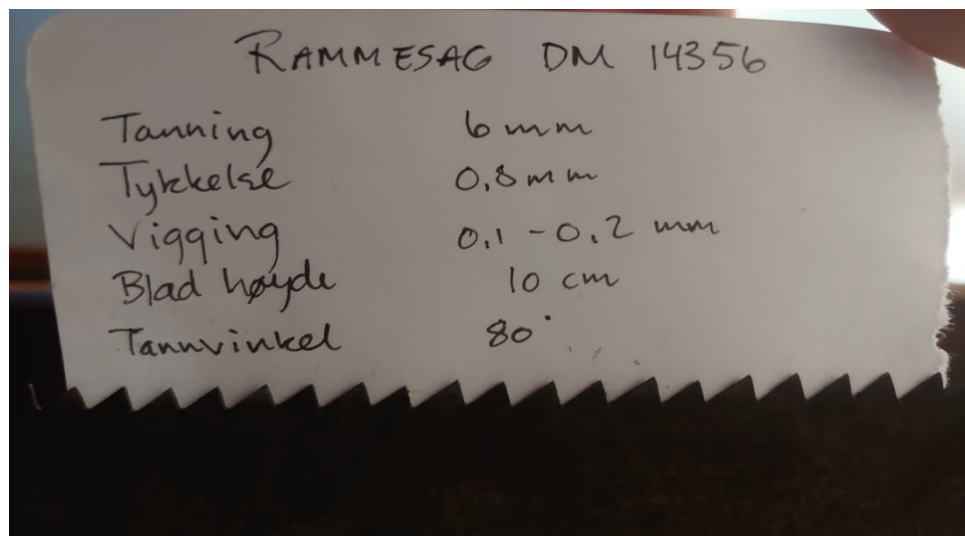 RAMMESAG DM 14356
Tanning 6 mm
Tykkelse 0,8 mm
Vigging 0,1 - 0,2 mm
Blad høyde 10 cm
Tannvinkel 80°